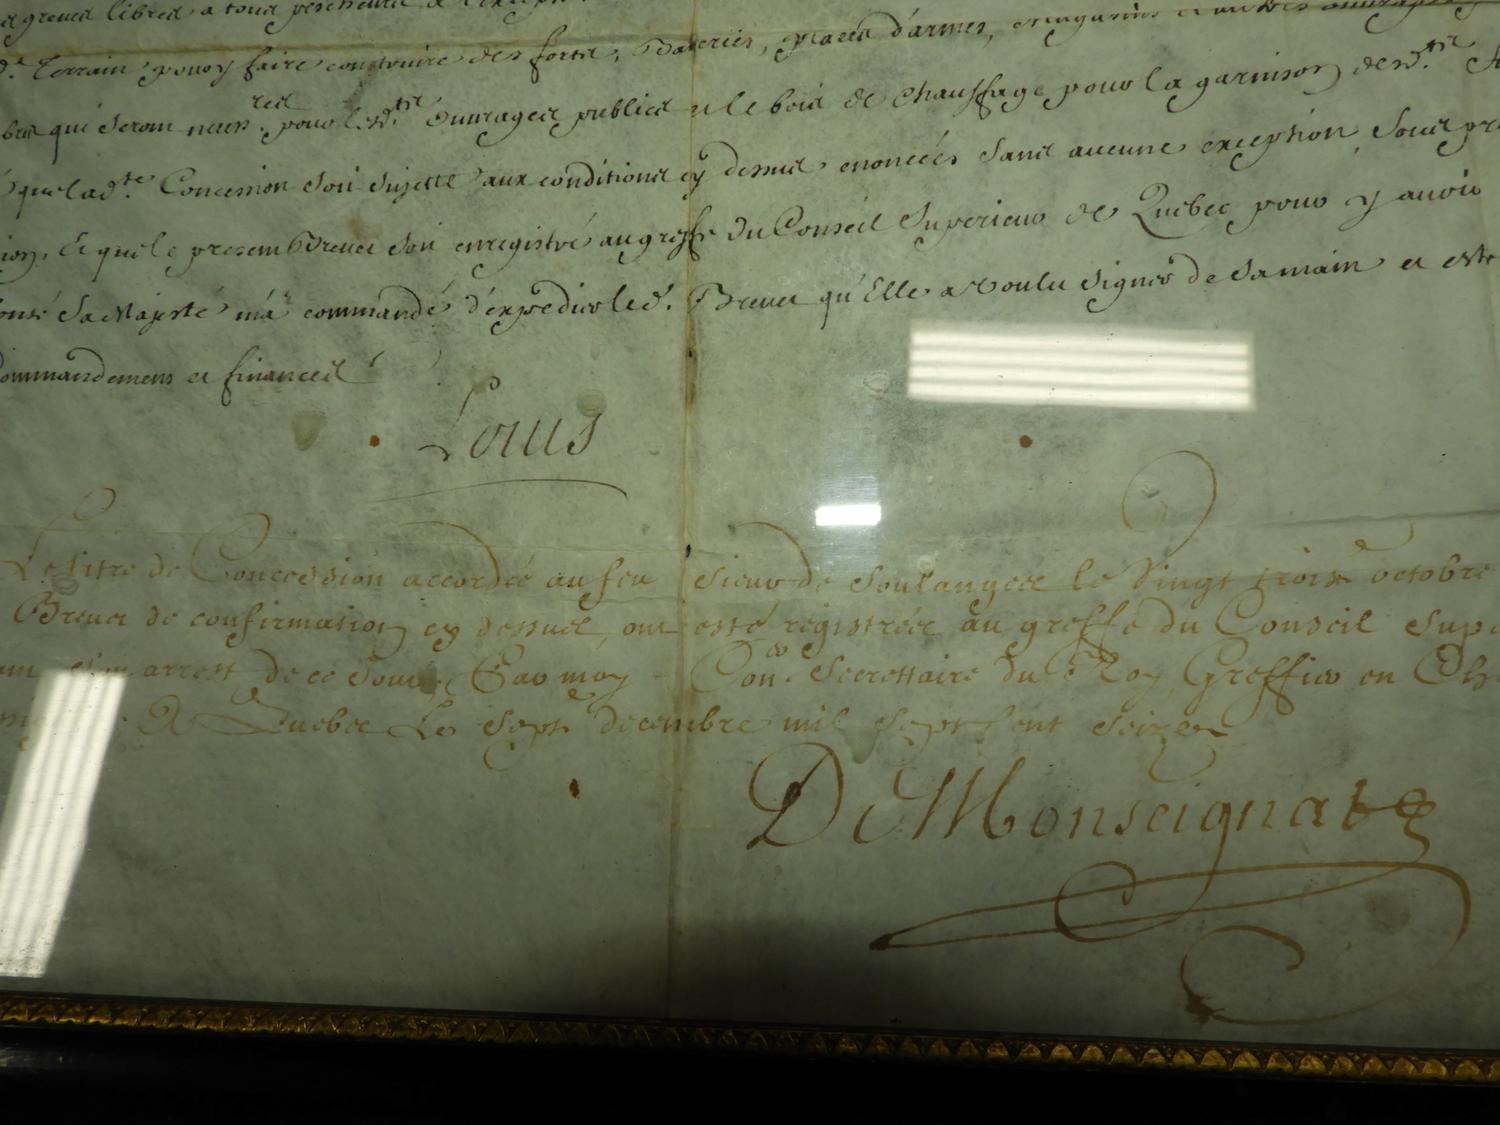 greves libres a tous pescheurs a l'except
d.t Terrain pour y faire construire des forts, Batteries, places d'armes, magasins et autres ouvrages
bres qui seront necess.res pour lesd.ts Ouvrages publics et le bois de Chauffage pour la garnison desd.ts
que lad.te Concession soit sujette aux conditions cy dessus enoncées sans aucune exception, sous
Et que le present Brevet soit enregistré au greffe du Conseil Superieur de Quebec pour y avoir
Sa Majesté m'a commandé d'expedier led. Brevet qu'Elle a voulu signer de sa main et estre
Commandemens et finances
Louis
Le titre de Concession accordée au feu Sieur de Soulanges le Vingt trois octobre
Brevet de confirmation cy dessus, ont esté registrées au greffe du Conseil Supe
arrest de ce Jour Par moy Con.er Secrettaire du Roy Greffier en Ch
A Quebec Le Sept decembre mil sept Cent Seize
DeMonseignat